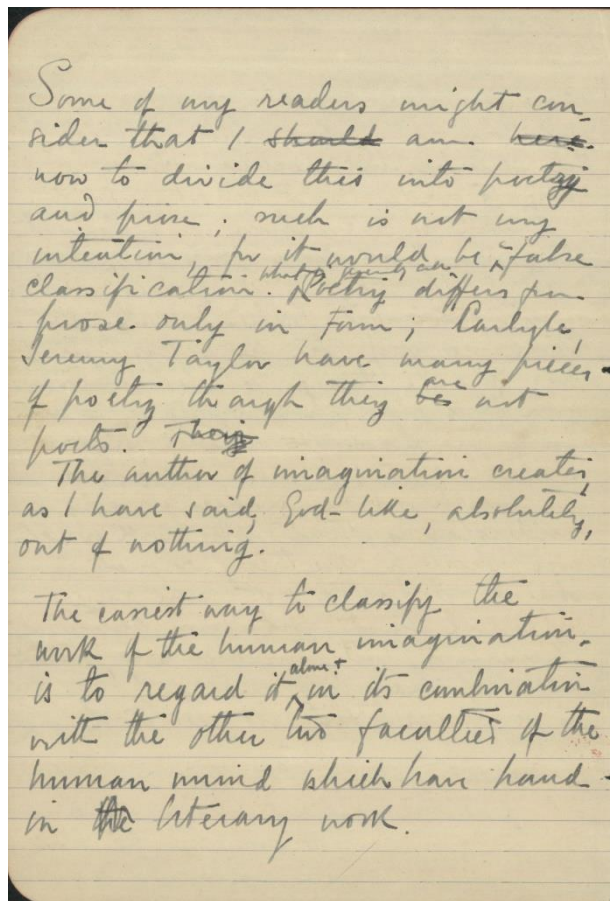 Some of my readers might con-
sider that I should am here
now to divide this into poetry
and prose; such is not my
intention, for it would be a false
classification. Poetry differs from
prose only in form; Carlyle,
Jeremy Taylor have many pieces
of poetry though they be are not
poets. Their
The author of imagination creates,
as I have said, God-like, absolutely,
out of nothing.
The easiest way to classify the
work of the human imagination,
is to regard it alone & in its combination
with the other two faculties of the
human mind which have hand
in the literary work.